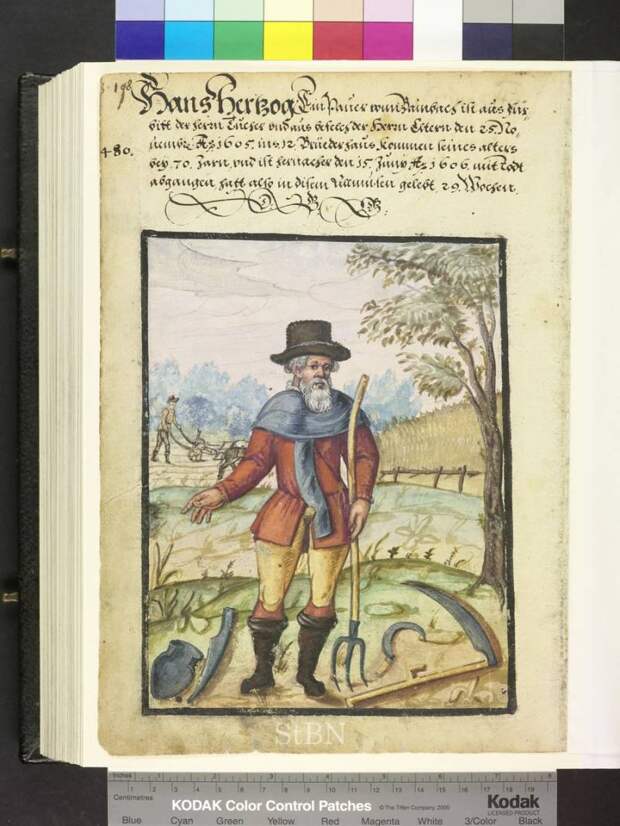 198
Hans Hertzog Ein Pauer vonn Rainbach ist aus Für
bitt der herrn Tucher vnd aus befelch der Herrn Eltern den 25 No
480.
uembr: A: 1605. ins 12 Brüederhaus kommen seines alters
bey 70. Jarn, vnd ist hernacher den 15 Juny A: 1606. mit Todt
abgangen, hatt also in disem Allmusen gelebt, 29 Wochen.
StBN
Inches 1 2 3 4 5 6 7 8
Centimetres 1 2 3 4 5 6 7 8 9 10 11 12 13 14 15 16 17 18 19
KODAK Color Control Patches © The Tiffen Company, 2000 Kodak
LICENSED PRODUCT
Blue Cyan Green Yellow Red Magenta White 3/Color Black